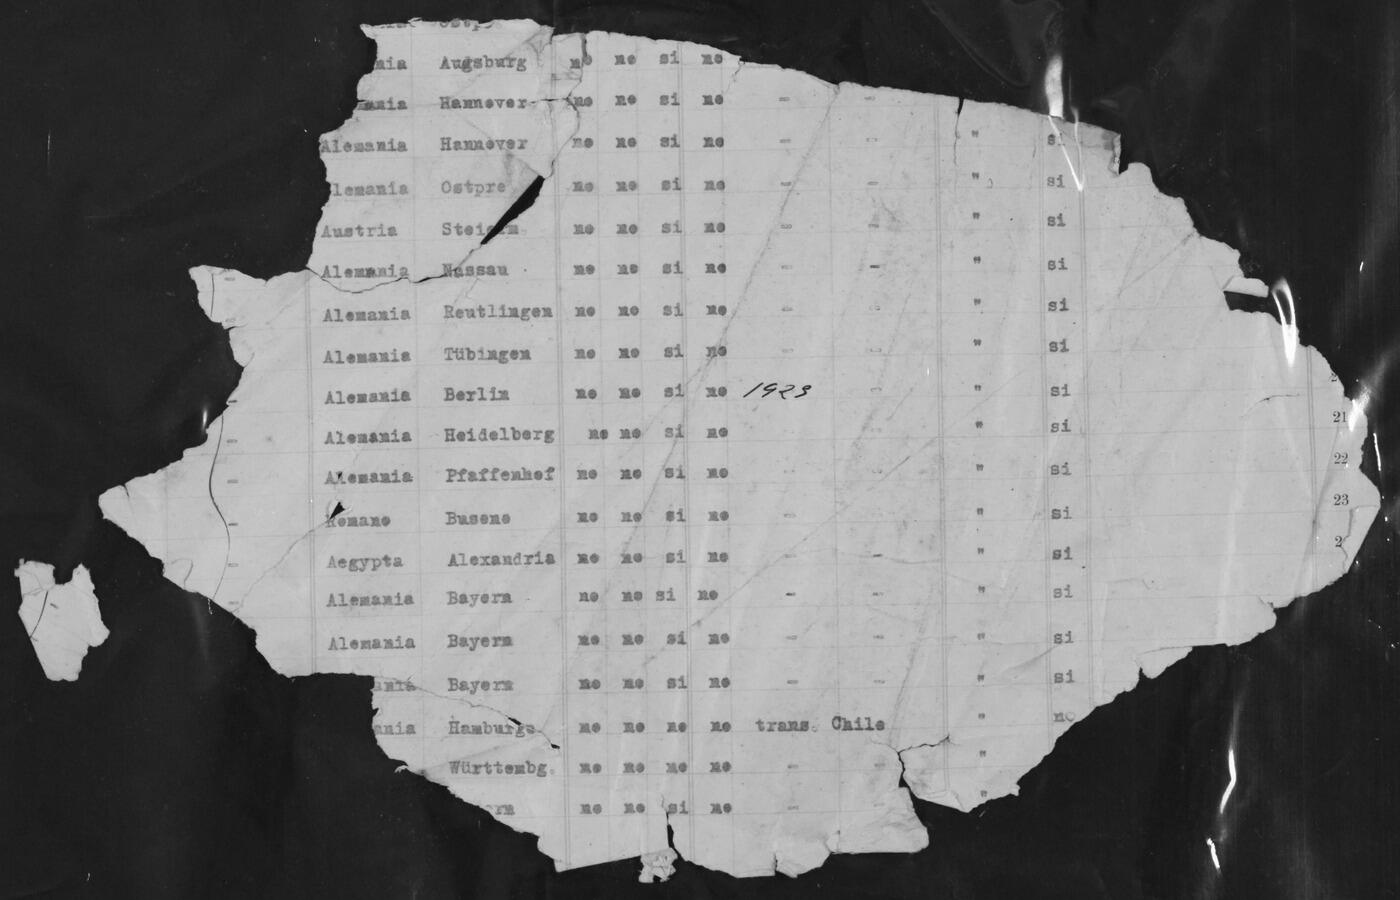 Augsburg no no si no
Hannover no no si no - -
Alemania Hannover no no si no - - " si
lemania Ostpre no no si no - - " si
Austria no no si no - - " si
Alemania Nassau no no si no - - " si
- Alemania Reutlingen no no si no - - " si
Alemania Tübingen no no si no - - " si
- Alemania Berlin no no si no 1923 - " si
- Alemania Heidelberg no no si no - - " si 21
- Alemania Pfaffenhof no no si no - - " si 22
- Romano Buseno no no si no - - " si 23
- Aegypta Alexandria no no si no - - " si
- Alemania Bayern no no si no - - " si
Alemania Bayern no no si no - - " si
Bayern no no si no - - " si
Hamburgo no no no no trans. Chile " no
Württembg. no no no no - - "
no no si no - "